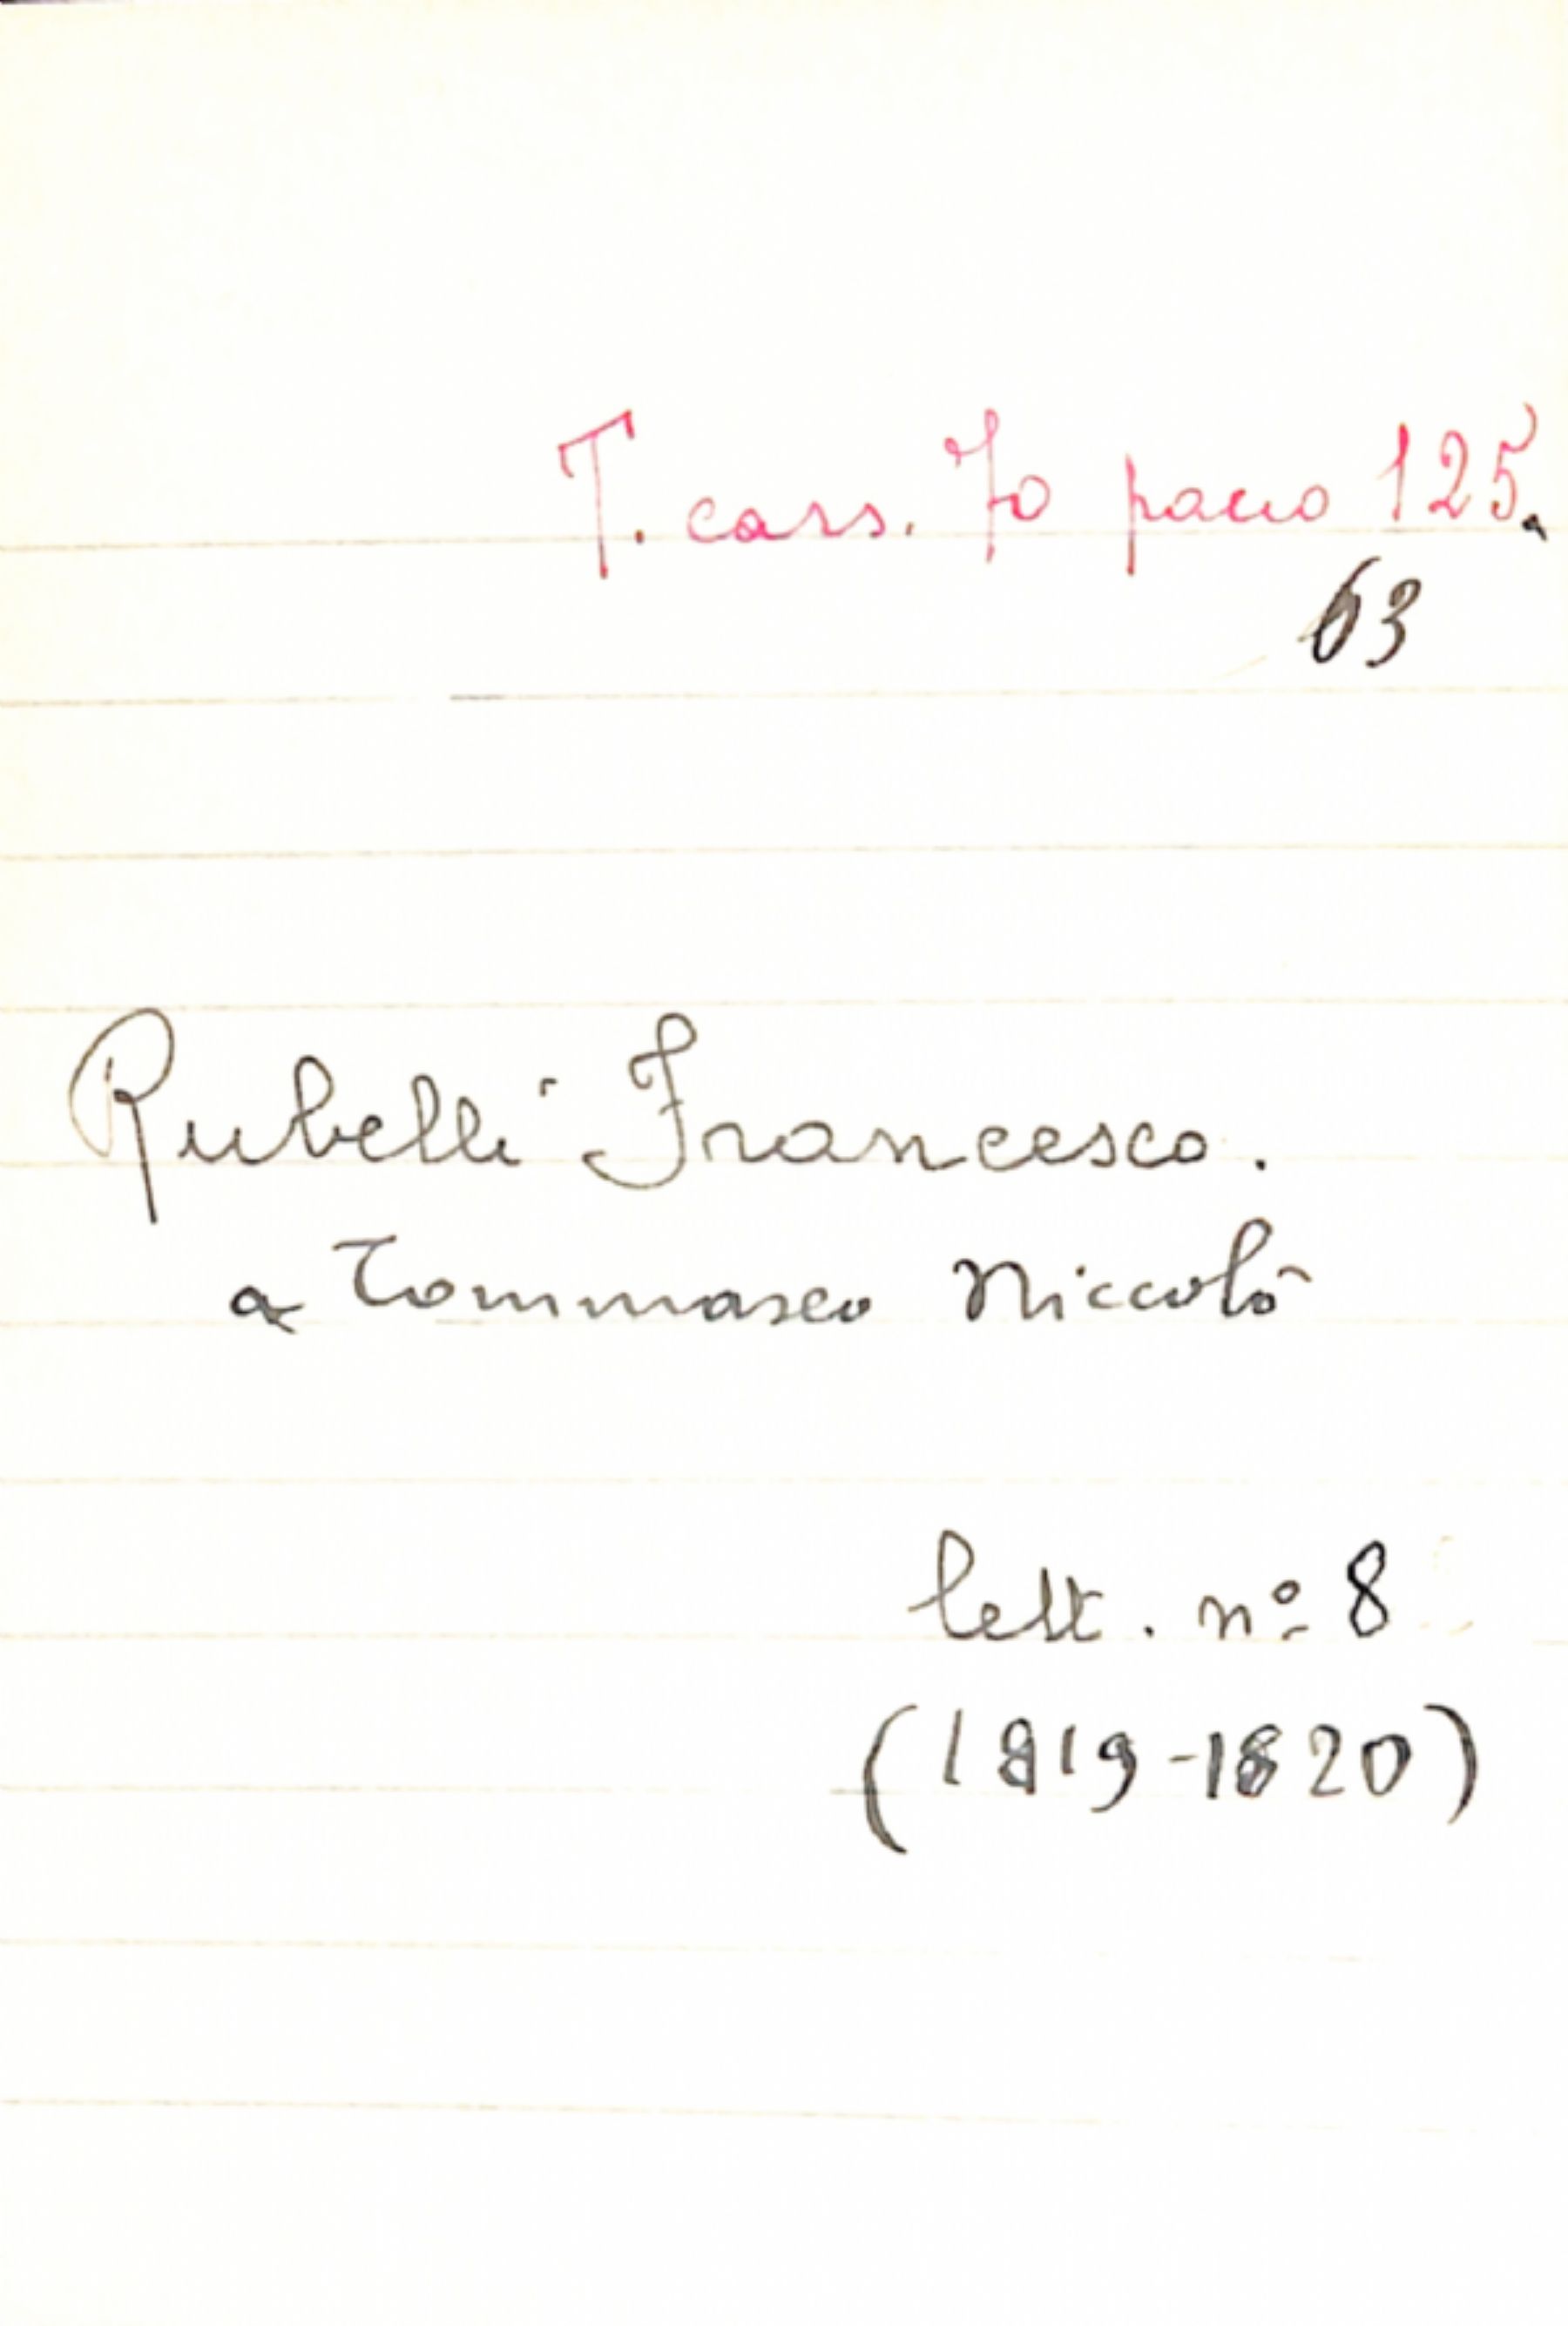 T. cass. 70 pacco 125.
63
Rubelli Francesco.
a Tommaseo Niccolò
lett. nº 8
(1819-1820)